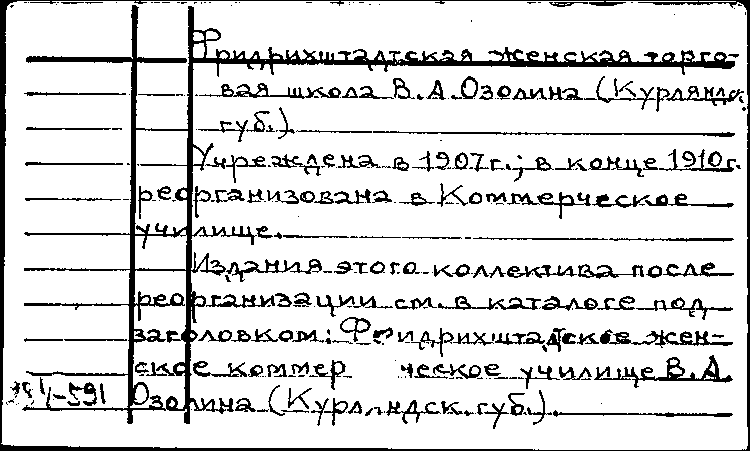 Фридрихштадтская женская торго-
вая школа В.А.Озолина (Курляндск.
губ.).
Учреждена в 1907г.; в конце 1910г.
реорганизована в Коммерческое
училище.
Издания этого коллектива после
реорганизации см. в каталоге под
заголовком: Фридрихштадтское жен-
ское коммерческое училище В.А.
Озолина (Курляндск. губ.).
-591